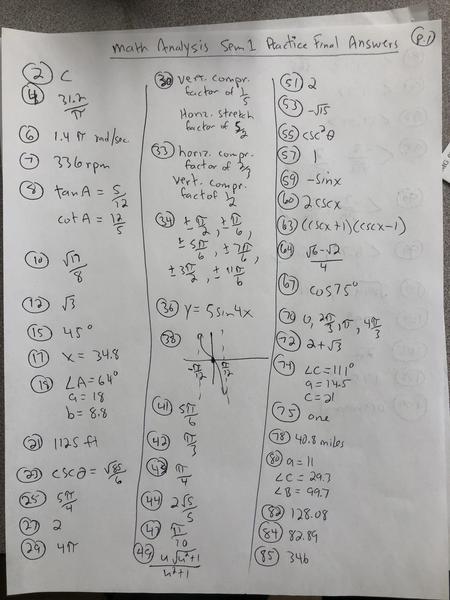 Math Analysis Sem 1 Practice Final Answers p.1
2 C
4 31.2/π
6 1.4π rad/sec
7 336 rpm
8 tan A = 5/12
cot A = 12/5
10 √17/8
12 √3
15 45°
17 x = 34.8
19 ∠A = 64°
a = 18
b = 8.8
21 1125 ft
23 csc θ = √85/6
25 5π/4
27 2
29 4π
30 vert. compr.
factor of 1/5
Horiz. stretch
factor of 5/2
33 horiz. compr.
factor of
vert. compr.
factor of 1/2
34 ±π/2, ±π/6,
±5π/6, ±7π/6,
±3π/2, ±11π/6
36 y = 5 sin 4x
38
-π/12 π/12
41 5π/6
42 π/3
43 π/4
44 2√5/5
47 π/10
49 u√u²+1/u²+1
51 2
53 -√15
55 csc²θ
57 1
59 -sinx
60 2cscx
63 (cscx+1)(cscx-1)
64 √6-√2/4
67 cos75°
70 0, 2π/3, π, 4π/3
72 2+√3
74 ∠C = 111°
a = 14.5
c = 21
75 one
78 40.8 miles
80 a = 11
∠C = 29.3
∠B = 99.7
82 128.08
84 82.89
85 346